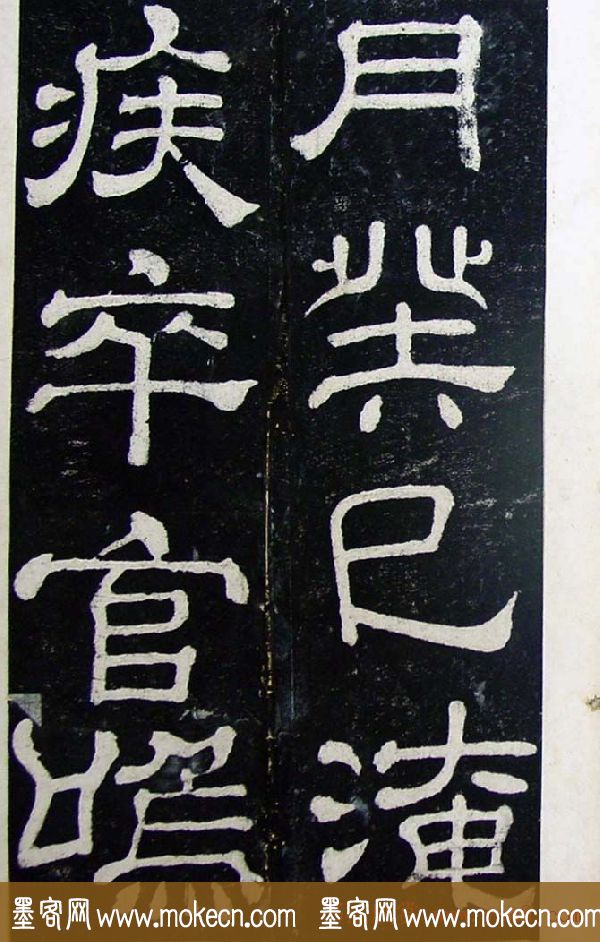 月癸巳淹
疾卒官嗚
墨客网 www.mokecn.com 墨客网 www.mokecn.com